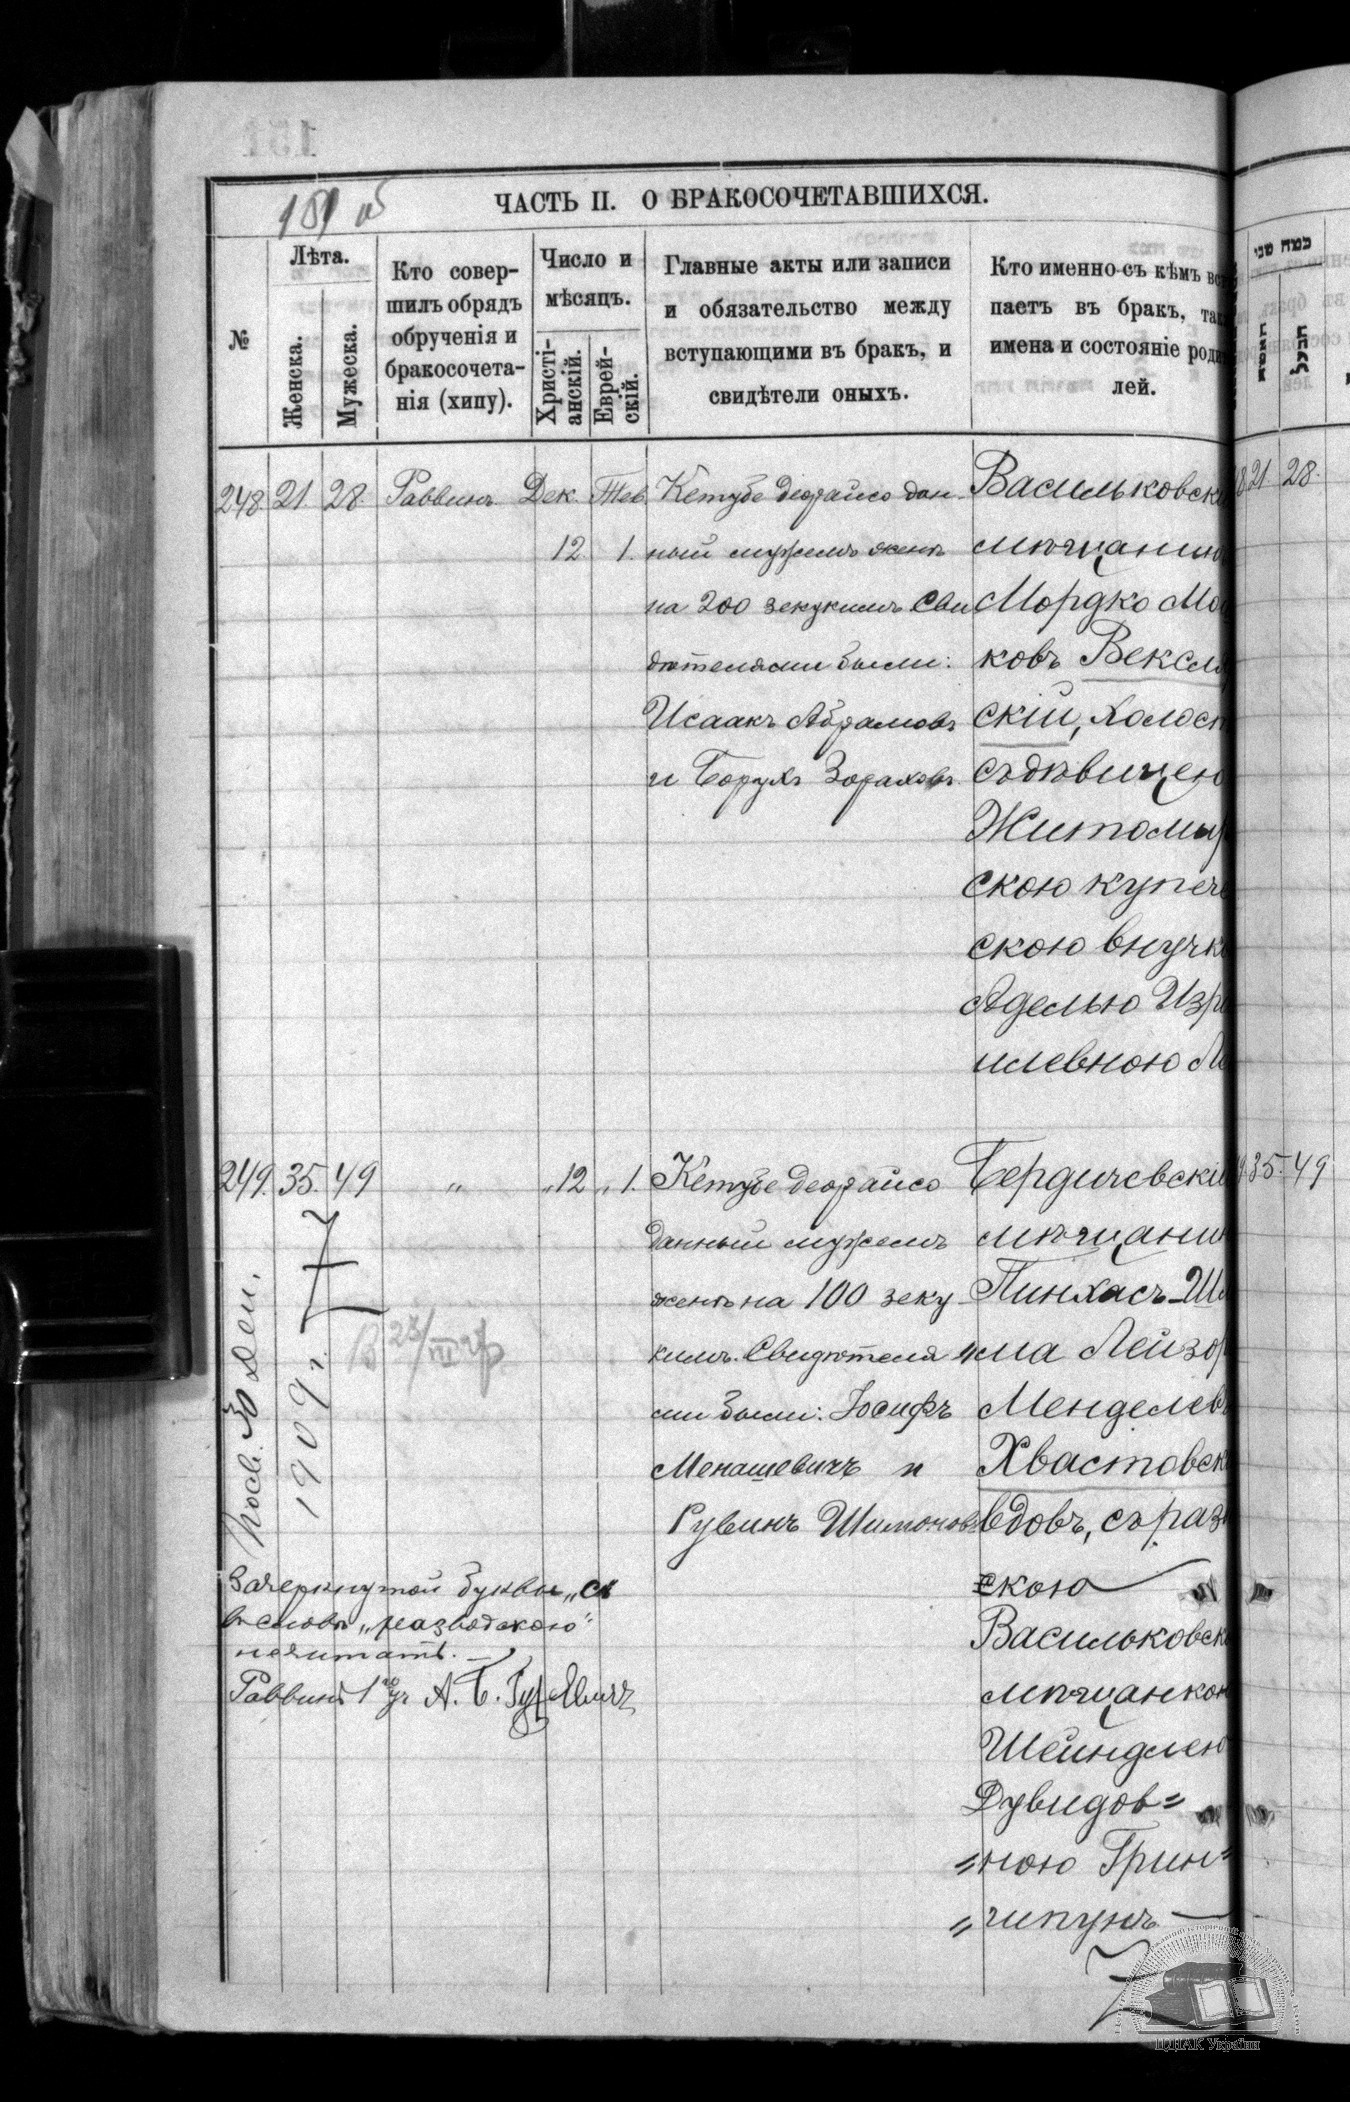 181 об
ЧАСТЬ II. О БРАКОСОЧЕТАВШИХСЯ.
№
Лѣта.
Женска.
Мужеска.
Кто совер-
шилъ обрядъ
обрученія и
бракосочета-
нія (хипу).
Число и
мѣсяцъ.
Христі-
анскій.
Еврей-
скій.
Главные акты или записи
и обязательство между
вступающими въ бракъ, и
свидѣтели оныхъ.
Кто именно съ кѣмъ вст
паетъ въ бракъ, так
имена и состояніе роди
лей.
248. 21. 28. Раввинъ Дек. Тев.
12. 1.
Кетубе деорайсо дан-
ный мужемъ женѣ
на 200 зекукимъ Сви
дѣтелями были:
Исаакъ Абрамовъ
и Борухъ Зораховъ.
Васильковскі
мѣщанинъ
Мордко Мош
ковъ Вексля
скій, холост
съ дѣвицею
Житомир
скою купече
скою внучко
Аделью Изра
илевною
21 28.
249. 35. 49 " " 12 " 1.
Кетубе деорайсо
данный мужемъ
женѣ на 100 зеку-
кимъ. Свидѣтеля
ми были: Іосифъ
Менашевичъ и
Рувинъ Шимоновъ
Бердичевскі
мѣщанин
Пинхасъ-Ш
ма Лейзор
Менделев
Хвастовск
вдовъ, съ разв
скою
Васильковск
мѣщанкою
Шейндлею
Дувидов=
=ною Грин=
=чипунъ
35. 49
1909 г.
В 23/III
Зачеркнутой буквы „ск
въ словѣ „разводскою"
нечитать.
Раввинъ 1го уч А. Б. Гуревичъ
ЦДІАК України